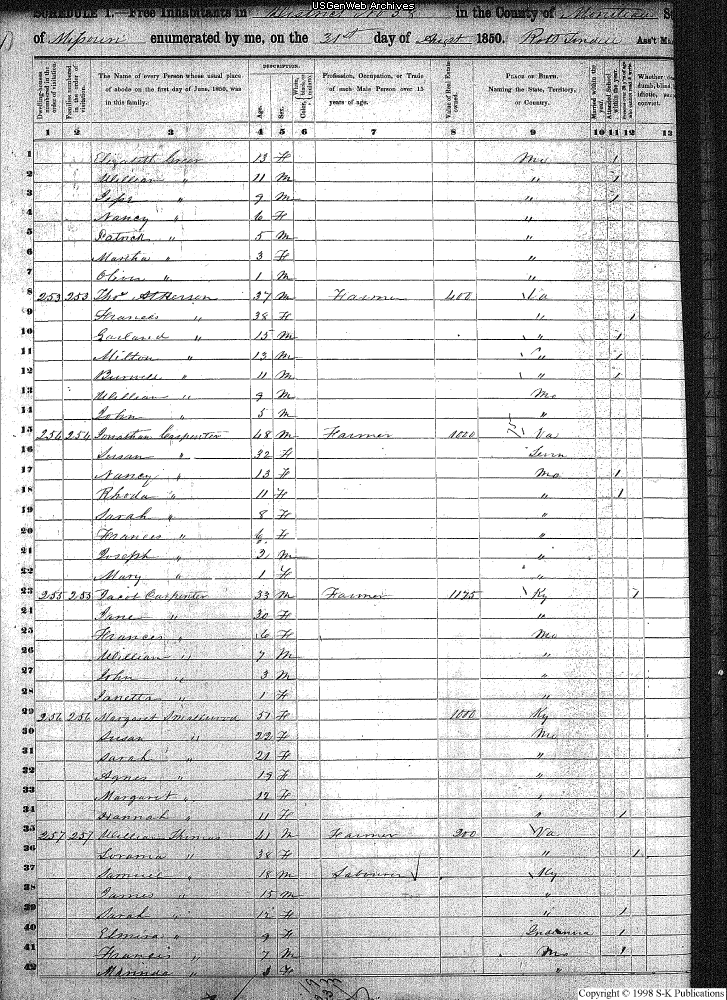 USGenWeb Archives
SCHEDULE I.—Free Inhabitants in District No 53 in the County of Moniteau
of Missouri enumerated by me, on the 31st day of August 1850. Ass't Ma
Dwelling-houses numbered in the order of visitation.
Families numbered in the order of visitation.
The Name of every Person whose usual place of abode on the first day of June, 1850, was in this family.
DESCRIPTION.
Age.
Sex.
Color,
Profession, Occupation, or Trade of each Male Person over 15 years of age.
Value of Real Estate owned.
PLACE OF BIRTH. Naming the State, Territory, or Country.
Married within the year.
Attended School within the year.
Whether
1 2 3 4 5 6 7 8 9 10 11 12 13
1 Elizabeth 13 F Mo 1
2 William " 11 M " 1
3 " 9 M " 1
4 Nancy " 6 F "
5 Patrick " 5 M "
6 Martha " 3 F "
7 Oliver " 1 M "
8 253 253 Thos Atkerson 37 M Farmer 400 Va
9 Frances " 38 F " 1
10 Garland " 15 M " 1
11 Milton " 13 M " 1
12 Burwell " 11 M " 1
13 William " 9 M Mo
14 John " 5 M "
15 254 254 Jonathan Carpenter 48 M Farmer 1000 Va
16 Susan " 32 F Tenn
17 Nancy " 13 F Mo 1
18 Rhoda " 11 F " 1
19 Sarah " 8 F "
20 Frances " 6 F "
21 Joseph " 3 M "
22 Mary " 1 F "
23 255 255 Jacob Carpenter 33 M Farmer 1175 Ky 1
24 Jane " 30 F "
25 Frances " 6 F Mo
26 William " 7 M "
27 John " 3 M "
28 Janetta " 1 F "
29 256 256 Margaret Smallwood 51 F 1000 Ky
30 Susan " 22 F Mo
31 Sarah " 21 F "
32 Agnes " 19 F "
33 Margaret " 12 F "
34 Hannah " 11 F " 1
35 257 257 William Thomas 41 M Farmer 200 Va
36 " 38 F " 1
37 Samuel " 18 M Labourer Ky
38 James " 15 M "
39 Sarah " 12 F " 1
40 Elmira " 9 F Indianna 1
41 Francis " 7 M Mo 1
42 " F "
Copyright © 1998 S-K Publications